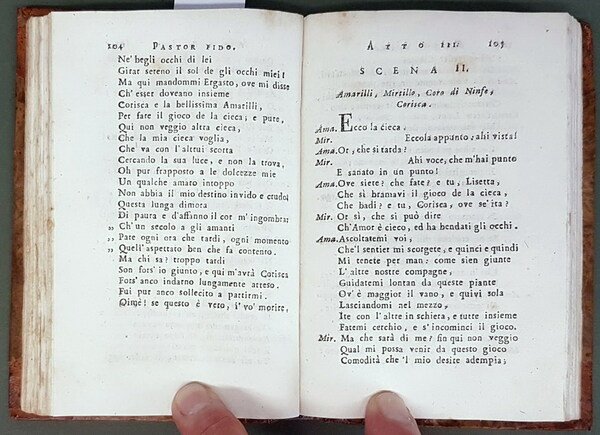 104 PASTOR FIDO.
Ne' begli occhi di lei
Girar sereno il sol de gli occhi miei!
Ma qui mandommi Ergasto, ove mi disse
Ch' esser doveano insieme
Corisca e la bellissima Amarilli,
Per fare il gioco de la cieca; e pure,
Qui non veggio altra cieca,
Che la mia cieca voglia,
Che va con l'altrui scorta
Cercando la sua luce, e non la trova.
Oh pur frapposto a le dolcezze mie
Un qualche amaro intoppo
Non abbia il mio destino invido e crudo!
Questa lunga dimora
Di paura e d'affanno il cor m'ingombra:
„ Ch'un secolo a gli amanti
„ Pare ogni ora che tardi, ogni momento
„ Quell'aspettato ben che fa contento.
Ma chi sa? troppo tardi
Son fors' io giunto, e qui m'avrà Corisca
Fors'anco indarno lungamente atteso.
Fui pur anco sollecito a partirmi.
Oimè! se questo è vero, i' vo' morire,
ATTO III. 105
SCENA II.
Amarilli, Mirtillo, Coro di Ninfe,
Corisca.
Ama. Ecco la cieca.
Mir. Eccola appunto: ahi vista!
Ama. Or, che si tarda?
Mir. Ahi voce, che m'hai punto
E sanato in un punto!
Ama. Ove siete? che fate? e tu, Lisetta,
Che sì bramavi il gioco de la cieca,
Che badi? e tu, Corisca, ove se' ita?
Mir. Or sì, che si può dire
Ch'Amor è cieco, ed ha bendati gli occhi.
Ama. Ascoltatemi voi,
Che'l sentier mi scorgete, e quinci e quindi
Mi tenete per man: come sien giunte
L' altre nostre compagne,
Guidatemi lontan da queste piante
Ov' è maggior il vano, e quivi sola
Lasciandomi nel mezzo,
Ite con l'altre in schiera, e tutte insieme
Fatemi cerchio, e s' incominci il gioco.
Mir. Ma che sarà di me? fin qui non veggio
Qual mi possa venir da questo gioco
Comodità che 'l mio desire adempia;